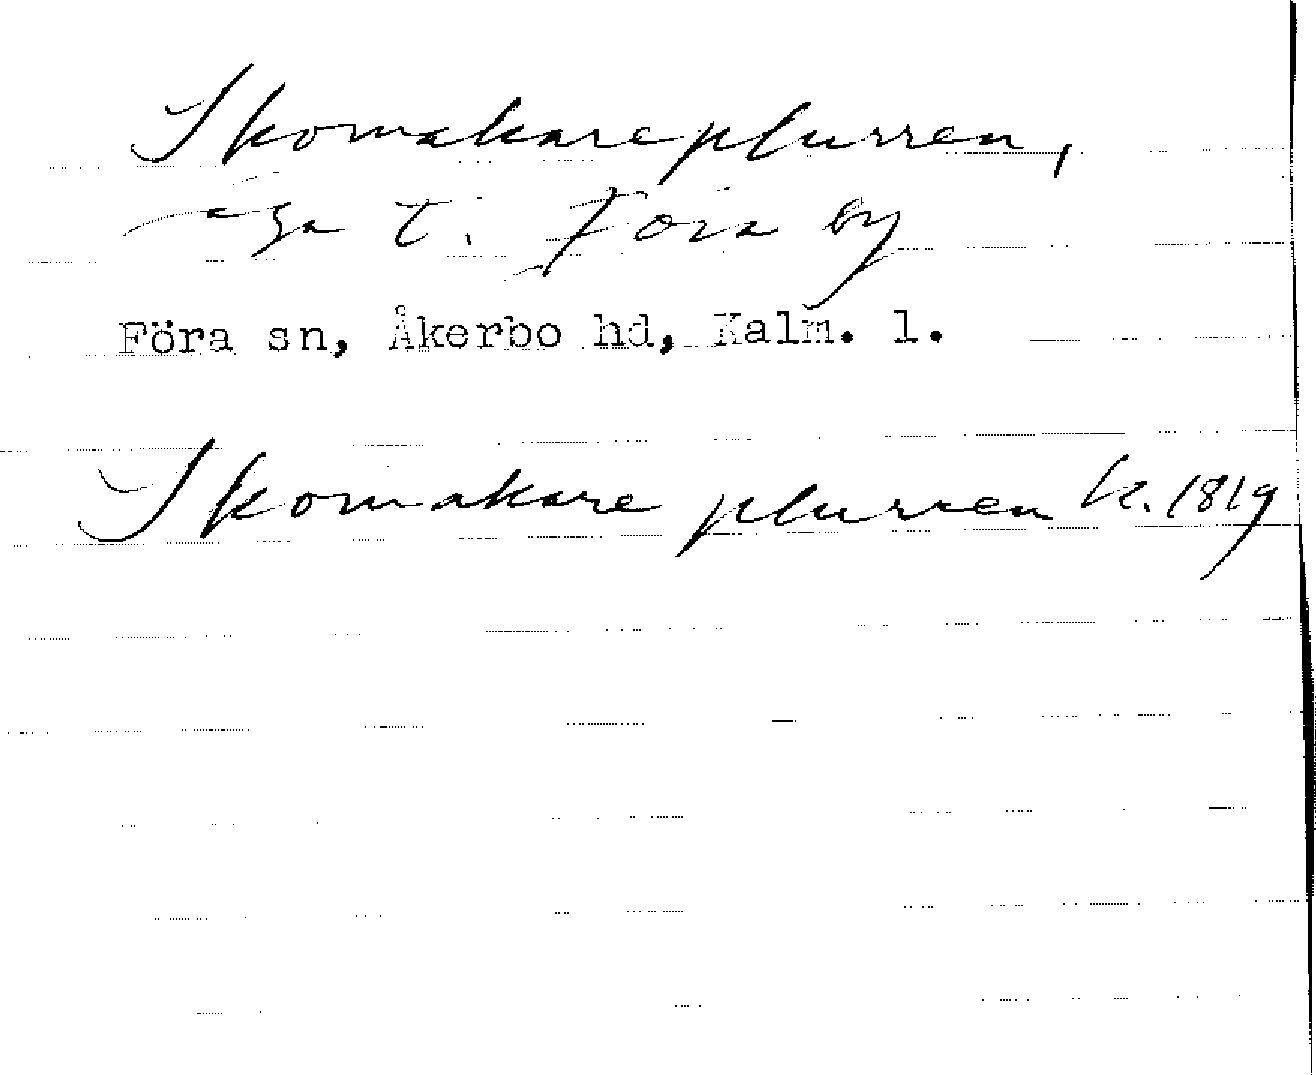 Skomakareplurren,
äga t. Föra by
Föra sn, Åkerbo hd, Kalm. l.
Skomakare plurren k. 1819